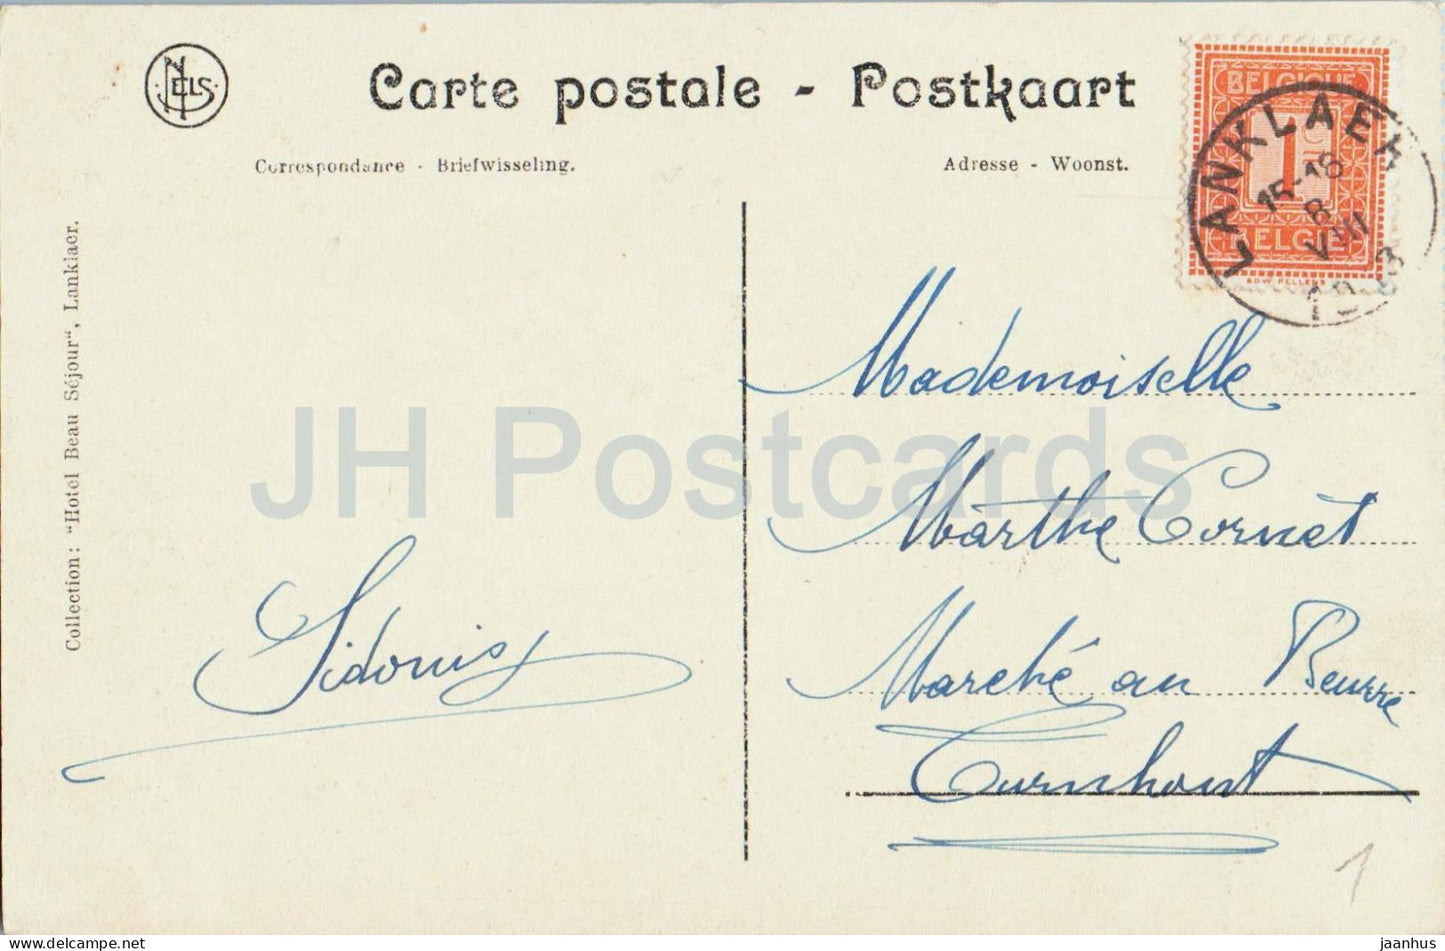 NELS
Carte postale - Postkaart
Correspondance - Briefwisseling.
Adresse - Woonst.
BELGIQUE
1
BELGIË
LANKLAER
15-16
8
VIII
Collection: "Hotel Beau Séjour", Lanklaer.
Mademoiselle
Marthe Cornet
Marché au Beurre
Turnhout
Sidonis
JH Postcards
1
www.delcampe.net
jaanhus